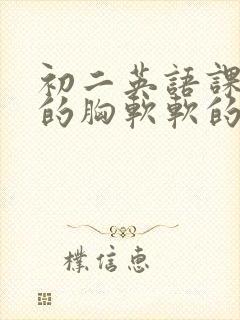 初二英語課
的胸軟軟的
樸信惠